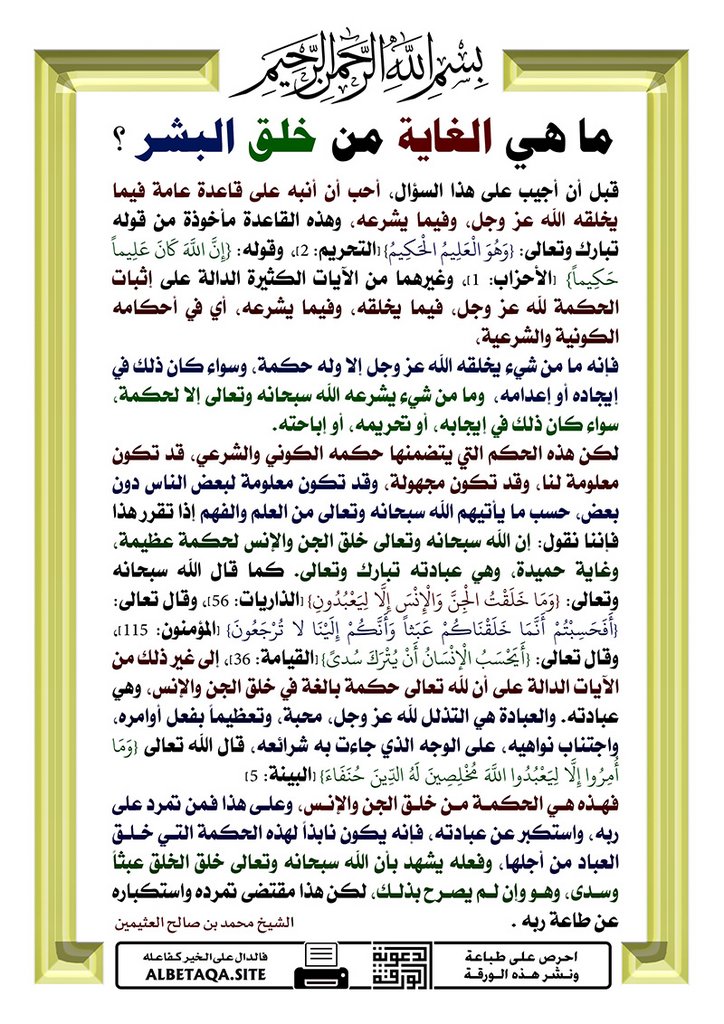 بسم الله الرحمن الرحيم
ما هي الغاية من خلق البشر ؟
قبل أن أجيب على هذا السؤال، أحب أن أنبه على قاعدة عامة فيما
يخلقه الله عز وجل، وفيما يشرعه، وهذه القاعدة مأخوذة من قوله
تبارك وتعالى: {وَهُوَ الْعَلِيمُ الْحَكِيمُ} [التحريم: 2]، وقوله: {إِنَّ اللَّهَ كَانَ عَلِيماً
حَكِيماً} [الأحزاب: 1]، وغيرهما من الآيات الكثيرة الدالة على إثبات
الحكمة لله عز وجل، فيما يخلقه، وفيما يشرعه، أي في أحكامه
الكونية والشرعية،
فإنه ما من شيء يخلقه الله عز وجل إلا وله حكمة، وسواء كان ذلك في
إيجاده أو إعدامه، وما من شيء يشرعه الله سبحانه وتعالى إلا لحكمة،
سواء كان ذلك في إيجابه، أو تحريمه، أو إباحته.
لكن هذه الحكم التي يتضمنها حكمه الكوني والشرعي، قد تكون
معلومة لنا، وقد تكون مجهولة، وقد تكون معلومة لبعض الناس دون
بعض، حسب ما يأتيهم الله سبحانه وتعالى من العلم والفهم إذا تقرر هذا
فإننا نقول: إن الله سبحانه وتعالى خلق الجن والإنس لحكمة عظيمة،
وغاية حميدة، وهي عبادته تبارك وتعالى. كما قال الله سبحانه
وتعالى: {وَمَا خَلَقْتُ الْجِنَّ وَالْإِنْسَ إِلَّا لِيَعْبُدُونِ} [الذاريات: 56]، وقال تعالى:
{أَفَحَسِبْتُمْ أَنَّمَا خَلَقْنَاكُمْ عَبَثاً وَأَنَّكُمْ إِلَيْنَا لا تُرْجَعُونَ} [المؤمنون: 115]،
وقال تعالى: {أَيَحْسَبُ الْإِنْسَانُ أَنْ يُتْرَكَ سُدىً} [القيامة: 36]، إلى غير ذلك من
الآيات الدالة على أن لله تعالى حكمة بالغة في خلق الجن والإنس، وهي
عبادته. والعبادة هي التذلل لله عز وجل، محبة، وتعظيماً بفعل أوامره،
واجتناب نواهيه، على الوجه الذي جاءت به شرائعه، قال الله تعالى {وَمَا
أُمِرُوا إِلَّا لِيَعْبُدُوا اللَّهَ مُخْلِصِينَ لَهُ الدِّينَ حُنَفَاءَ} [البينة: 5]
فهذه هي الحكمة من خلق الجن والإنس، وعلى هذا فمن تمرد على
ربه، واستكبر عن عبادته، فإنه يكون نابذاً لهذه الحكمة التي خلق
العباد من أجلها، وفعله يشهد بأن الله سبحانه وتعالى خلق الخلق عبثاً
وسدى، وهو وان لم يصرح بذلك، لكن هذا مقتضى تمرده واستكباره
عن طاعة ربه .
الشيخ محمد بن صالح العثيمين
احرص على طباعة
ونشر هذه الورقة
الورقة الدعوية
فالدال على الخير كفاعله
ALBETAQA.SITE